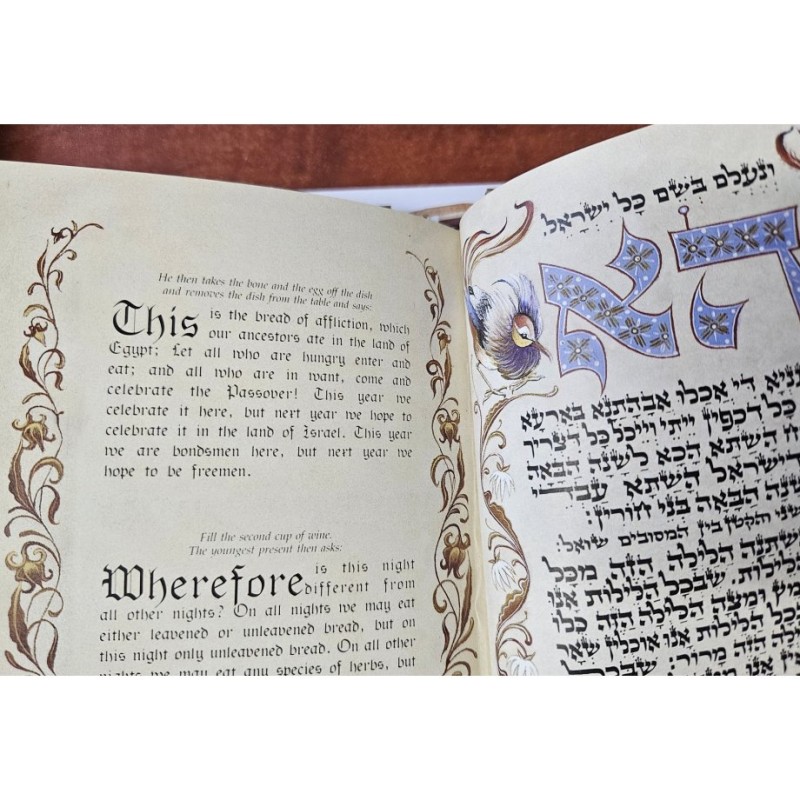 He then takes the bone and the egg off the dish
and removes the dish from the table and says:
This is the bread of affliction, which
our ancestors ate in the land of
Egypt; Let all who are hungry enter and
eat; and all who are in want, come and
celebrate the Passover! This year we
celebrate it here, but next year we hope to
celebrate it in the land of Israel. This year
we are bondsmen here, but next year we
hope to be freemen.
Fill the second cup of wine.
The youngest present then asks:
Wherefore is this night
different from
all other nights? On all nights we may eat
either leavened or unleavened bread, but on
this night only unleavened bread. On all other
nights we may eat any species of herbs, but
וְנֶעְלָם בְּשֵׁם כָּל יִשְׂרָאֵל.
הָא
עַנְיָא דִּי אֲכָלוּ אַבְהָתַנָא בְּאַרְעָא
כָּל דִכְפִין יֵיתֵי וְיֵיכֹל כָּל דִצְרִיךְ
הָשַׁתָּא הָכָא לְשָׁנָה הַבָּאָה
דְיִשְׂרָאֵל הָשַׁתָּא עַבְדֵי
לְשָׁנָה הַבָּאָה בְּנֵי חוֹרִין:
שני והקטן בין המסובים שואל:
נִשְׁתַּנָּה הַלַּיְלָה הַזֶּה מִכָּל
הַלֵּילוֹת. שֶׁבְּכָל הַלֵּילוֹת אָנוּ
חָמֵץ וּמַצָּה הַלַּיְלָה הַזֶּה כֻּלּוֹ
שֶׁבְּכָל הַלֵּילוֹת אָנוּ אוֹכְלִין שְׁאָר
הַלַּיְלָה הַזֶּה מָרוֹר: שֶׁבְּכָל